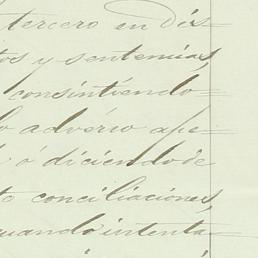 tercero en dis-
tos y sentencias,
consintiendo-
lo advérso ape-
ó diciendo de
to conciliaciones,
cuando intenta-